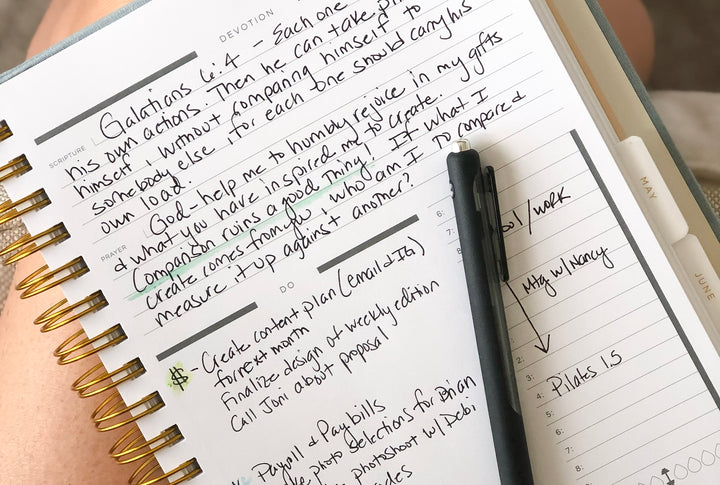 DEVOTION
Galatians 6:4 - Each one
his own actions. Then he can take
himself, without comparing himself to
somebody else, for each one should carry his
own load.
SCRIPTURE
God - help me to humbly rejoice in my gifts
& what you have inspired me to create.
Comparison ruins a good thing! If what I
create comes from you, who am I to compare &
measure it up against another?
PRAYER
DO
$ - Create content plan (email & IG)
for next month
Finalize design of weekly edition
Call Joni about proposal
Payroll & Pay bills
photo selections for Brian
photoshoot w/ Debi
6:
7:
/work
Mtg w/ Nancy
2:
3:
4: Pilates 1.5
5:
6:
7:
8:
MAY
JUNE